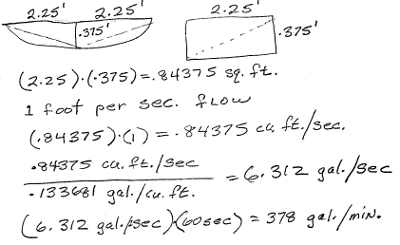 2.25' 2.25' 2.25'
.375' .375'
(2.25)·(.375)=.84375 sq. ft.
1 foot per sec. flow
(.84375)·(1) = .84375 cu. ft./sec.
.84375 cu. ft./sec
.133681 gal./cu. ft.
= 6.312 gal./sec
(6.312 gal./sec)(60sec) = 378 gal./min.